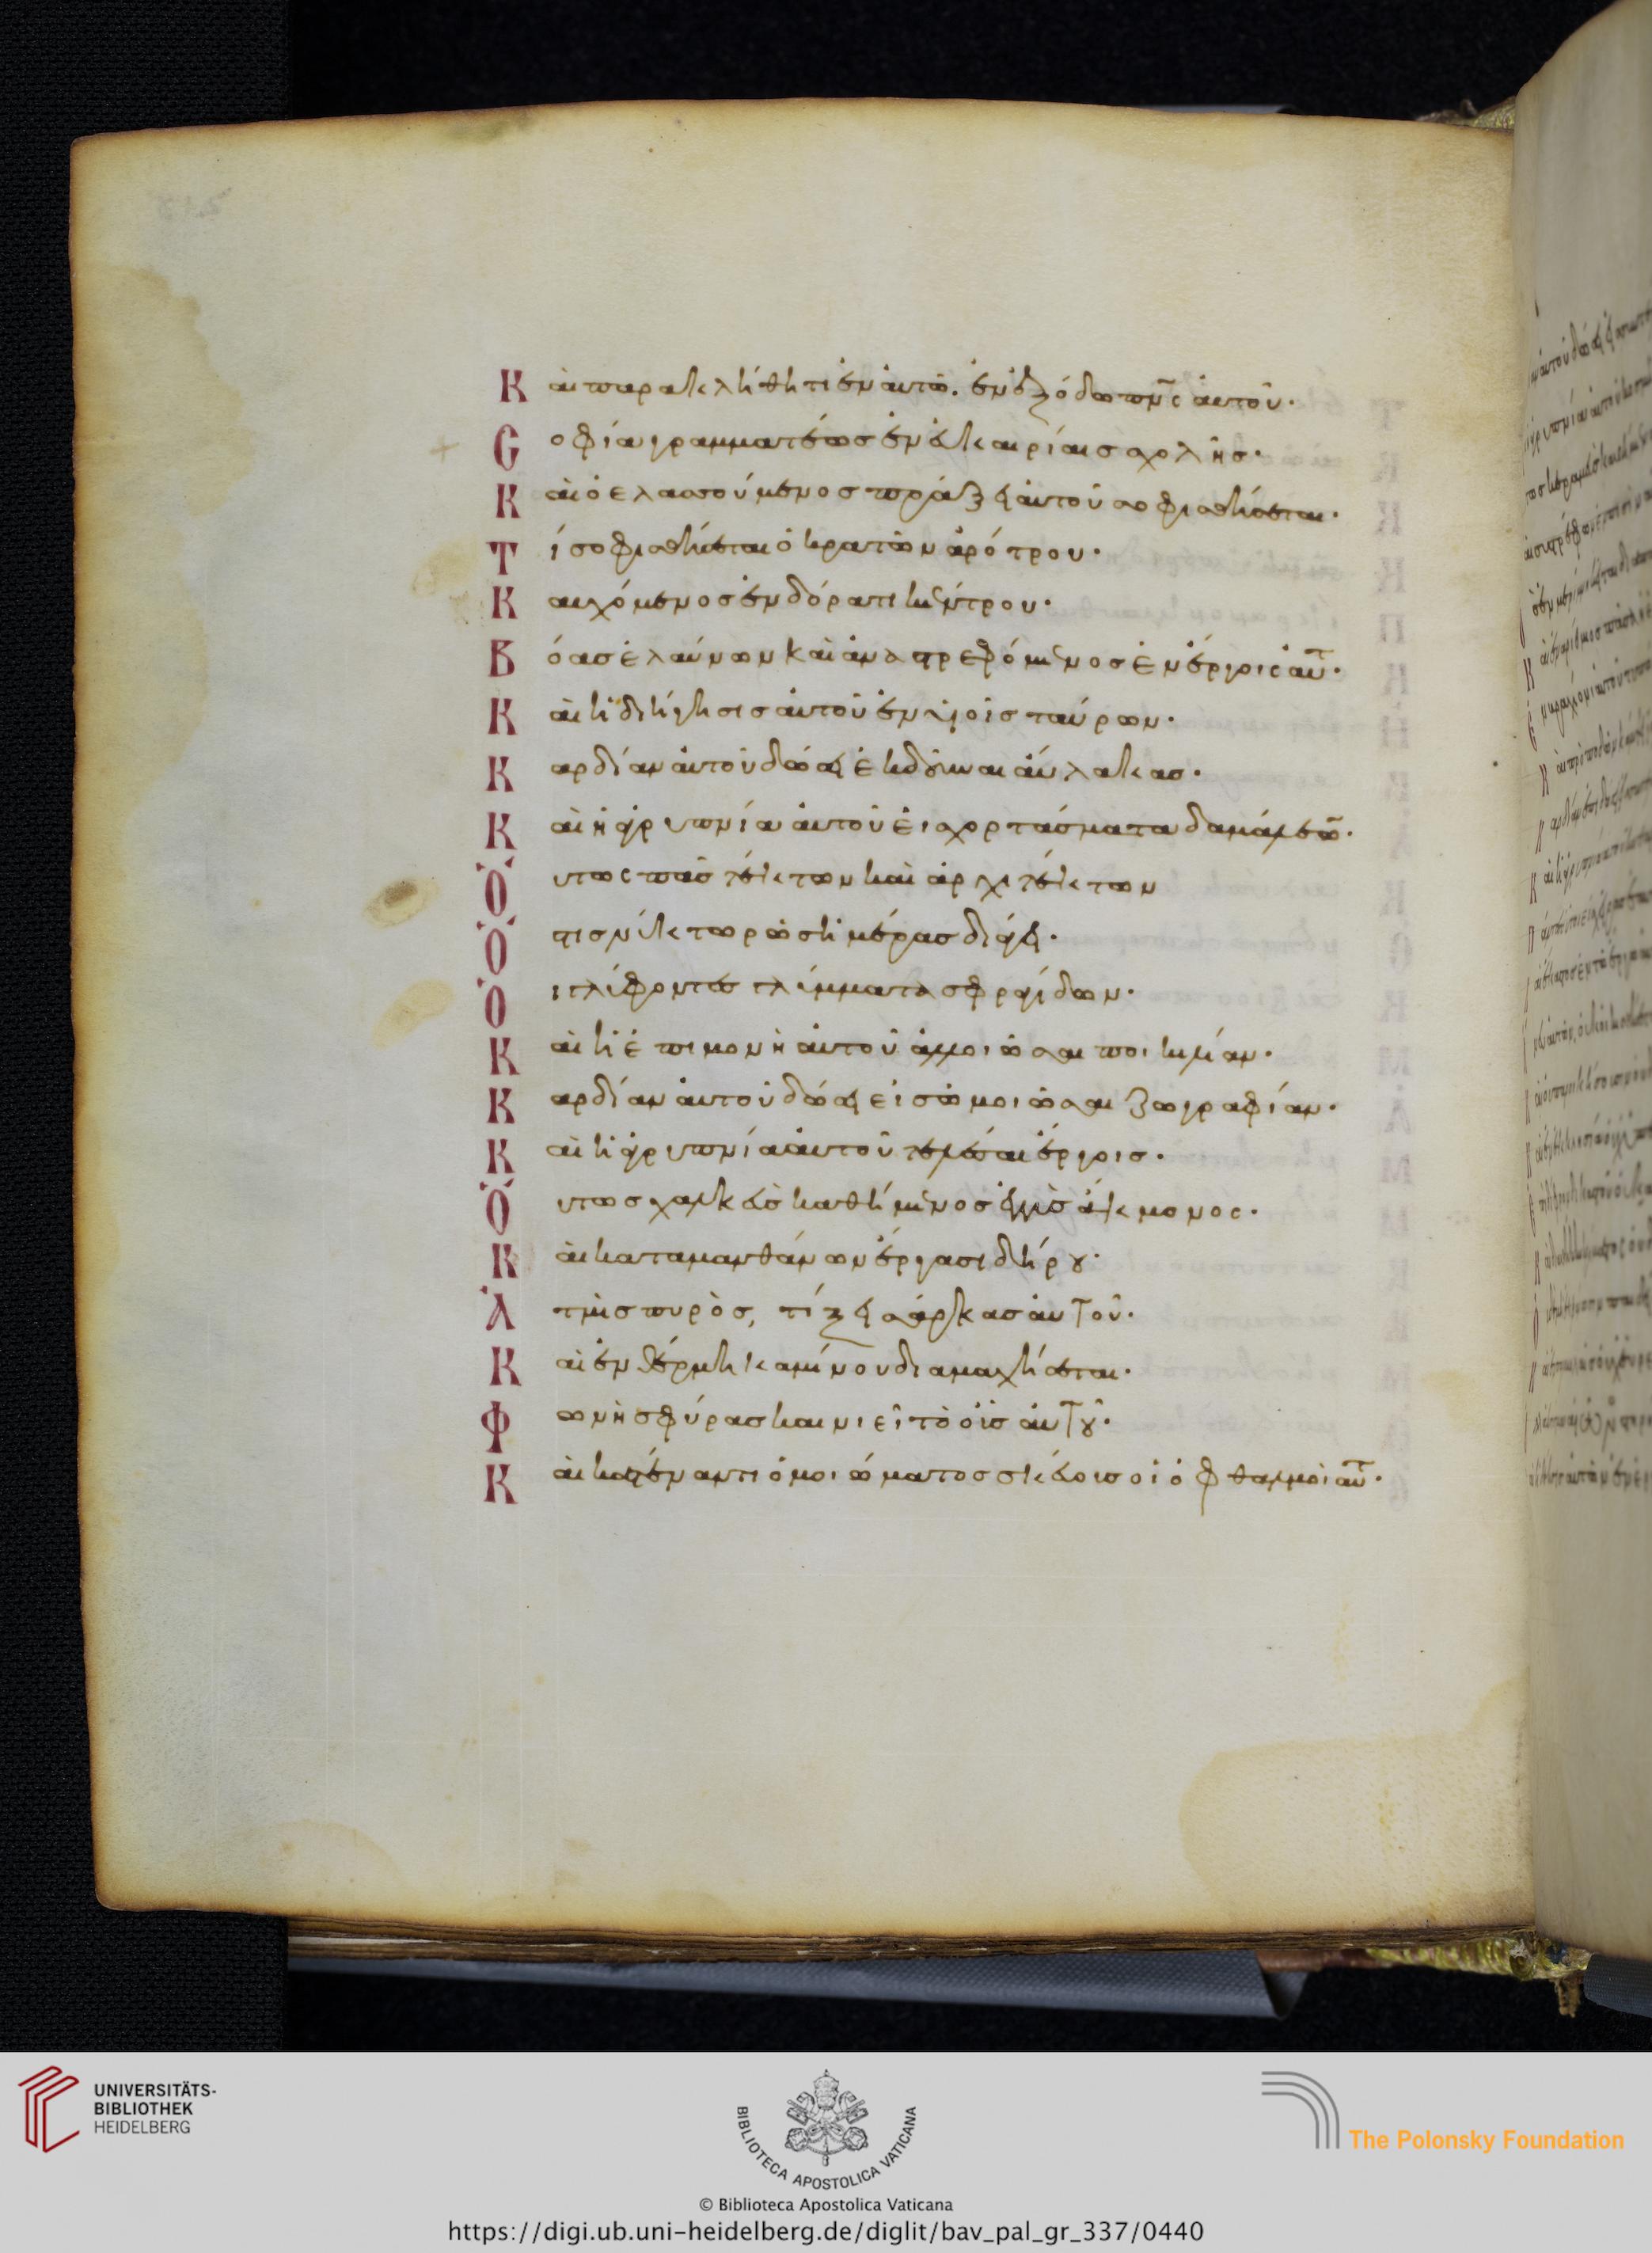 Καὶ παρακλήθητι ἐν αὐτῶ. ἐν ἐξόδω πν̅ς αὐτοῦ·
Σοφία γραμματέως ἐν ἐυκαιρίαι σχολῆσ·
Καὶ ὁ ελασσούμενοσ πράξει αὐτοῦ σοφισθήσεται·
Τί σοφισθήσεται ὁ κρατῶν ἀρότρου·
Καυχόμενοσ ἐν δόρατι κέντρου·
Βόασ ἐλαύνων καὶ ἀναστρεφόμενοσ ἐν ἔργοις αὐτ·
Καὶ ἡ διήγησισ αὐτοῦ ἐν υἱοῖσ ταύρων·
Καρδίαν αὐτοῦ δώσει ἐκδοῦναι αὔλακασ·
Καὶ ἡ ἀγρυπνία αὐτοῦ εἰ χορτάσματα δαμάλεω̅·
Οὕτως πᾶσ τέκτων καὶ ἀρχιτέκτων
Ὅστισ νύκτωρ ὡσ ἡμέρασ διάγει·
Οἱ γλύφοντεσ γλύμματα σφραγίδων·
Καὶ ἡ ἐπιμονὴ αὐτοῦ ἀλλοιῶσαι ποικιλίαν·
Καρδίαν αὐτοῦ δώσει εἰσ ὡμοιῶσαι ζωγραφίαν·
Καὶ ἡ ἀγρυπνία αὐτοῦ τελέσαι ἔργοισ·
Οὕτωσ χαλκεὺσ καθήμενοσ ἐγγὺσ ἄκμονος·
Καὶ καταμανθάνων ἔργασι διήρου·
Ἀτμὶσ πυρὸσ, τήξει σάρκασ αὐτοῦ·
Καὶ ἐν θέρμη καμίνου διαμαχήσεται·
Φωνὴ σφύρασ καινιεῖ τὸ οὖσ αὐτοῦ·
Καὶ κατέναντι ὁμοιώματοσ σκεύουσ οἱ ὀφθαλμοὶ αὐτ·
UNIVERSITÄTS-
BIBLIOTHEK
HEIDELBERG
BIBLIOTECA APOSTOLICA VATICANA
The Polonsky Foundation
© Biblioteca Apostolica Vaticana
https://digi.ub.uni-heidelberg.de/diglit/bav_pal_gr_337/0440